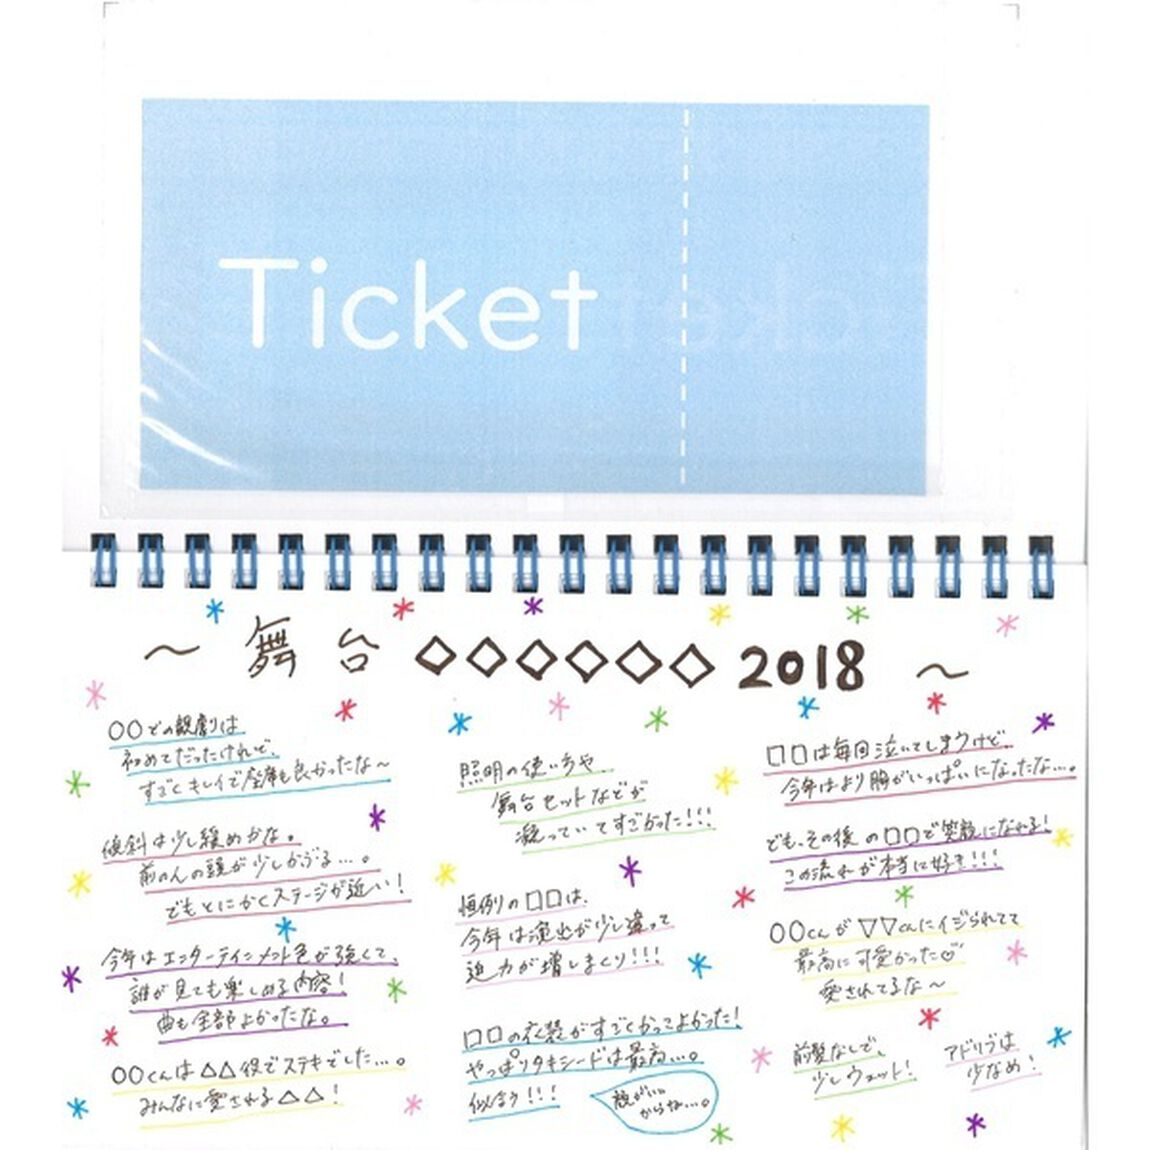 Ticket
～ 舞台 ◇◇◇◇◇◇ 2018 ～
○○での観劇は
初めてだったけれど、
すごくキレイで座席も良かったな～
傾斜は少し緩めかな。
前の人の頭が少しかぶる…。
でもとにかくステージが近い！
今年はエンターテインメント色が強くて、
誰が見ても楽しめる内容！
曲も全部よかったな。
○○くんは△△役でステキでした…。
みんなに愛される△△！
照明の使い方や、
舞台セットなどが
凝っていてすごかった!!!
恒例の□□は、
今年は演出が少し違って
迫力が増しまくり!!!
□□の衣装がすごくかっこよかった！
やっぱりタキシードは最高…。
似合う!!!
顔がいい
からな…。
□□は毎回泣いてしまうけど、
今年はより胸がいっぱいになったな…。
でも、その後の□□で笑顔になれる！
この流れが本当に好き!!!
○○くんが▽▽くんにイジられてて
最高に可愛かった♡
愛されてるな～
前髪なしで、
少しウェット！
アドリブは
少なめ！